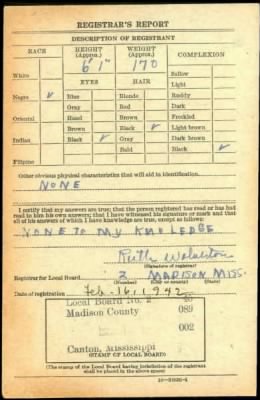 REGISTRAR'S REPORT
DESCRIPTION OF REGISTRANT
RACE HEIGHT (Approx.) WEIGHT (Approx.) COMPLEXION
6' 1" 170
White Sallow
EYES HAIR Light
Negro ✓ Blue Blonde Ruddy
Gray Red Dark
Oriental Hazel Brown Freckled
Brown Black ✓ Light brown
Indian Black ✓ Gray Dark brown
Bald Black ✓
Filipino
Other obvious physical characteristics that will aid in identification
NONE
I certify that my answers are true; that the person registered has read or has had
read to him his own answers; that I have witnessed his signature or mark and that
all of his answers of which I have knowledge are true, except as follows:
NONE TO MY KNOWLEDGE
Ruth
(Signature of registrar)
Registrar for Local Board 2 MADISON MISS.
Date of registration Feb. 16, 1942
Local Board No. 2
Madison County 089
002
Canton, Mississippi
(STAMP OF LOCAL BOARD)
(The stamp of the Local Board having jurisdiction of the registrant
shall be placed in the above space)